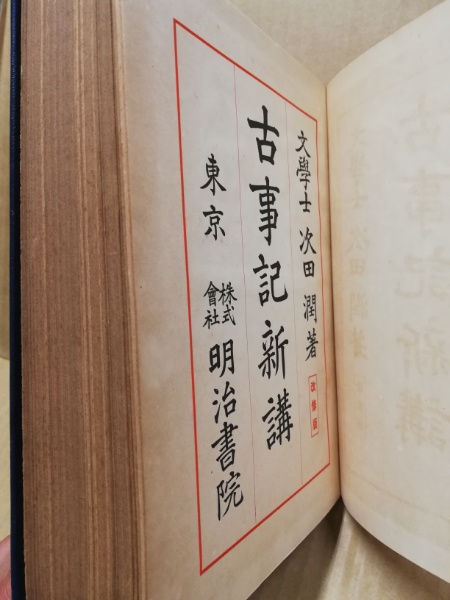 文學士 次田 潤著
改修版
古事記新講
東京 株式會社 明治書院